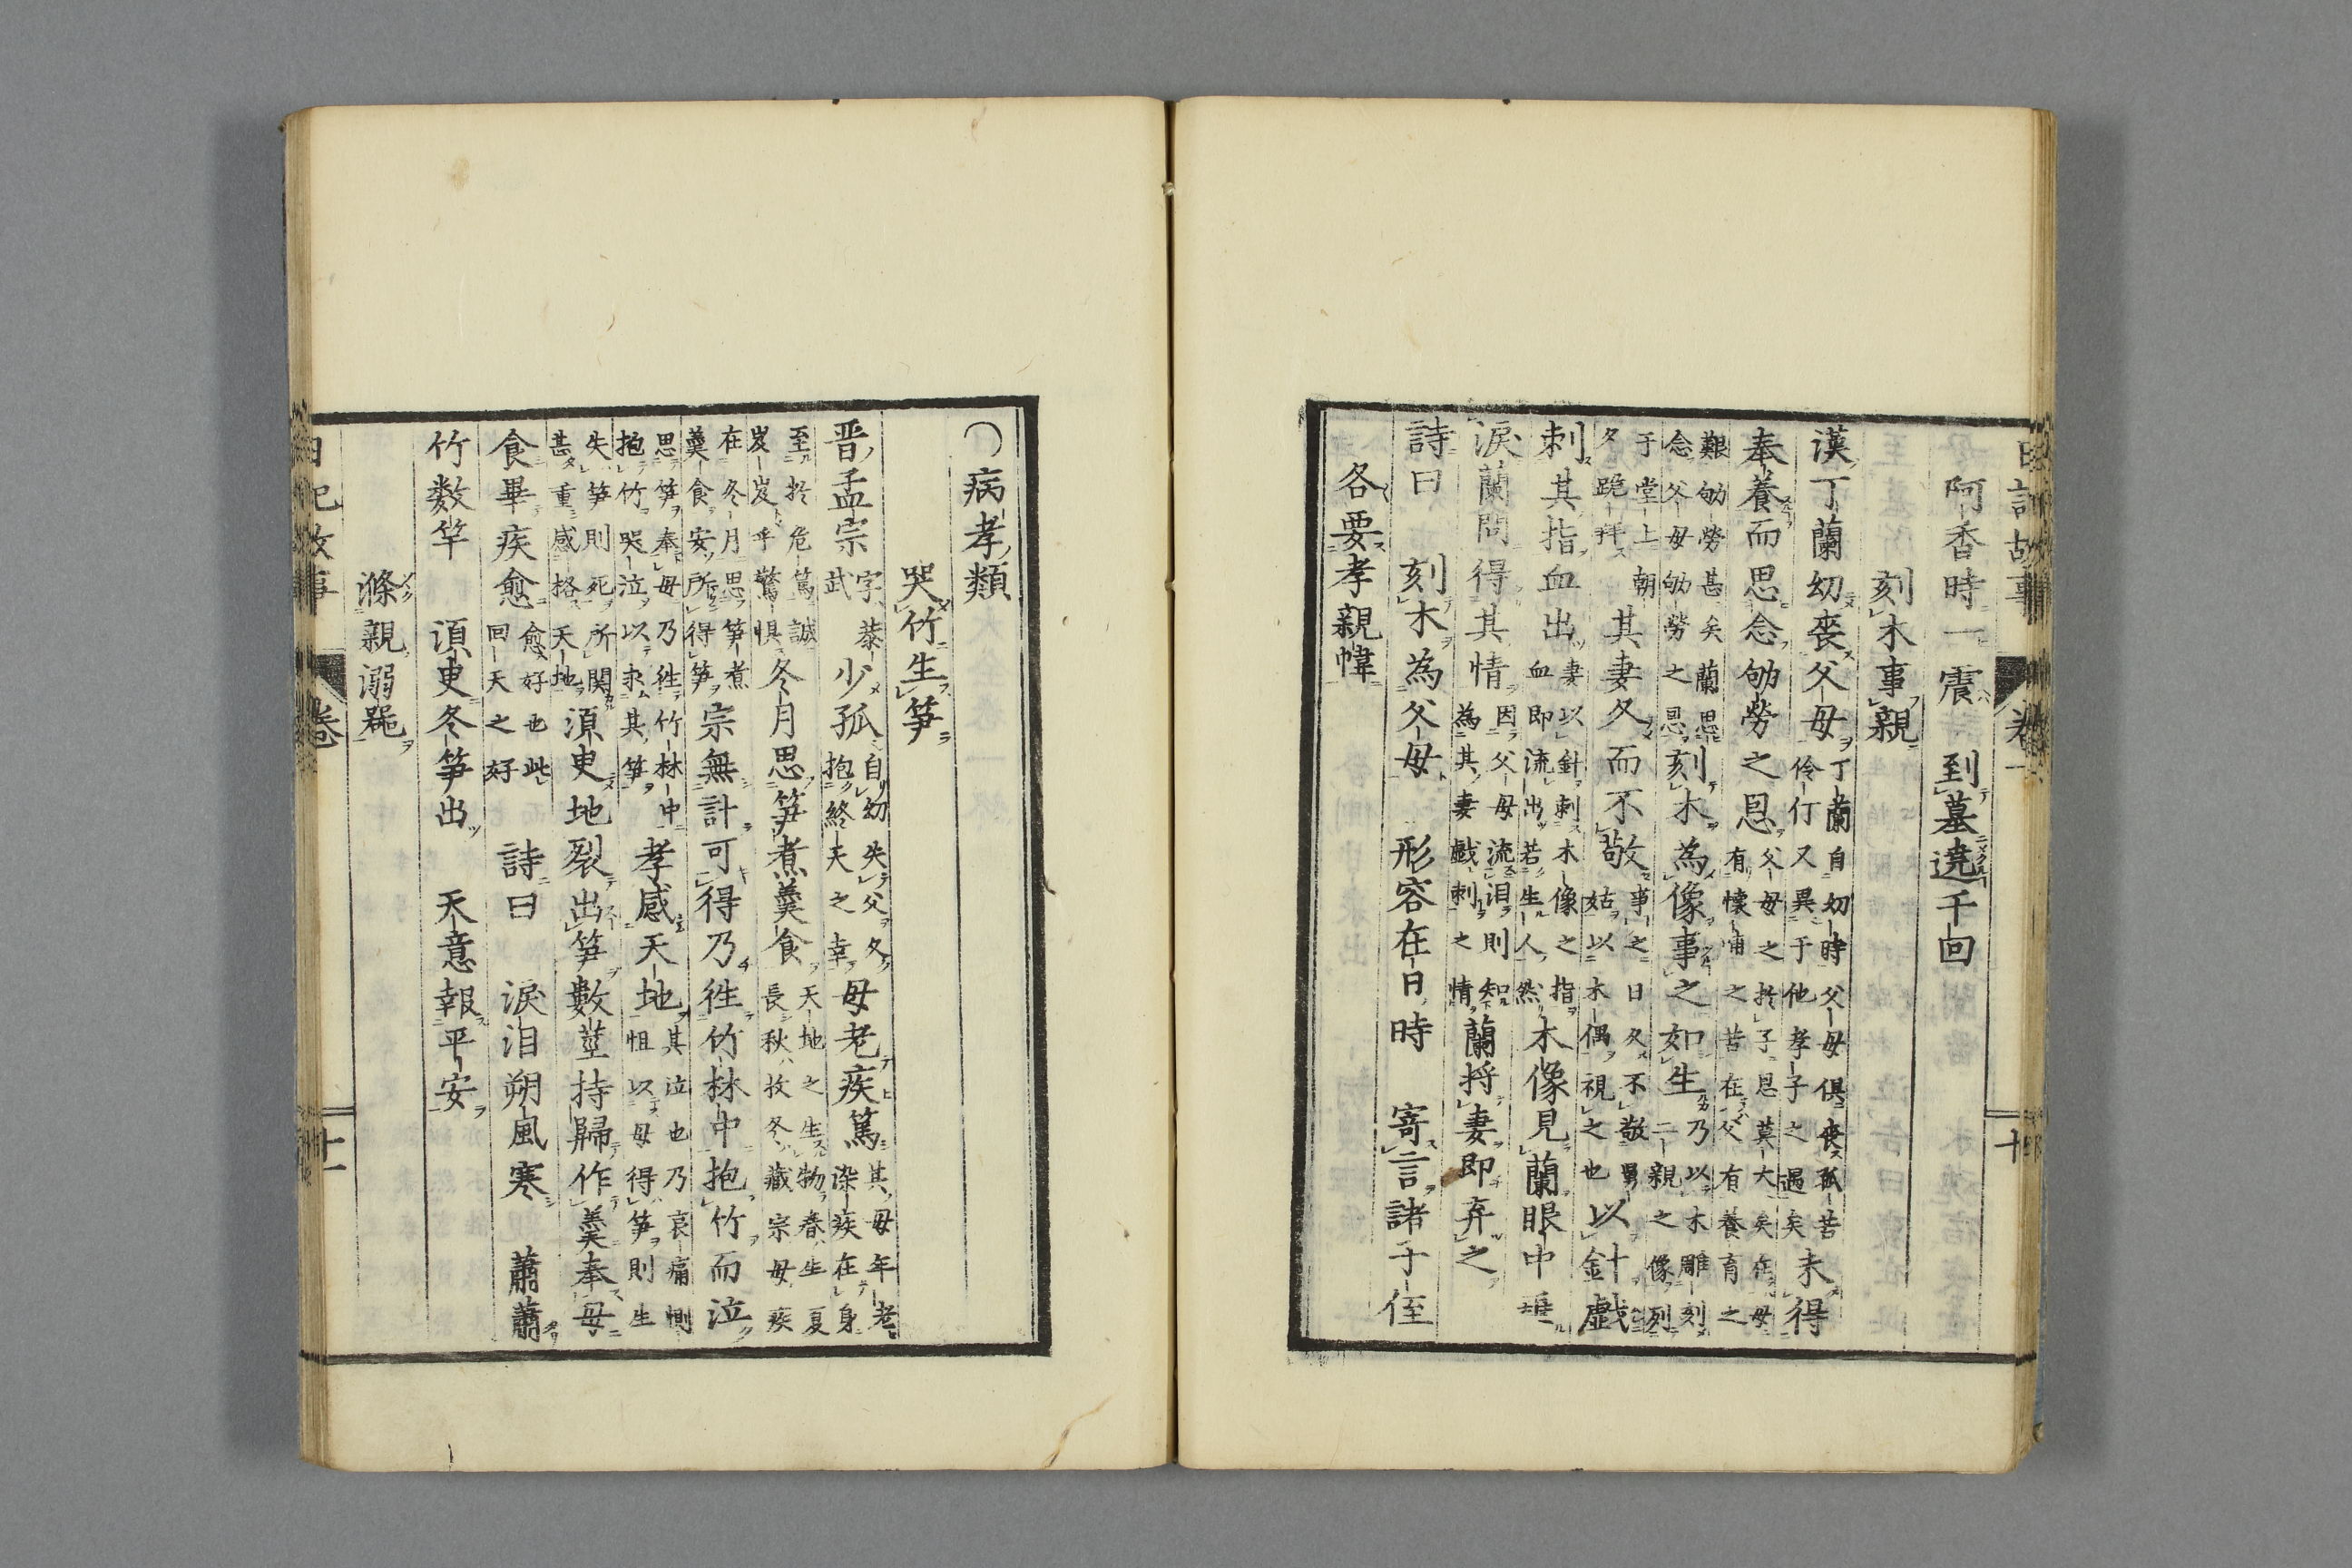 日記故事 卷一 十
阿香時一震 到墓遶千回
刻木事親
漢丁蘭幼喪父母丁蘭自幼時父母俱喪孤苦伶仃又異于他孝子之遇矣未得
奉養而思念劬勞之恩父母之於子恩莫大矣在母有懷哺之苦在父有養育之
艱劬勞甚矣蘭思念父母劬勞之恩刻木為像事之如生乃以木雕刻二親之像列
于堂上朝夕跪拜其妻久而不敬事之日久不敬舅姑以木偶視之也以針戲
刺其指血出妻以針刺木像之指血即流出若生人然木像見蘭眼中垂
淚蘭問得其情因父母流泪則知為其妻戲刺之情蘭将妻即弃之
詩曰 刻木為父母 形容在日時 寄言諸子侄
各要孝親幃
○病孝類
哭竹生笋
晋孟宗字恭武少孤自幼失父久抱終天之幸母老疾篤其母年老染疾在身
至於危篤誠岌岌乎驚惧冬月思笋煮羹食天地之生物春生夏長秋收冬藏宗母疾
在冬月思笋煮羹食安所得笋宗無計可得乃徃竹林中抱竹而泣
思笋奉母乃徃竹林中抱竹哭泣以求其笋孝感天地其泣也乃哀痛惻怛以母得笋則生
失笋則死所関甚重感格天地湏臾地裂出笋數莖持歸作羹奉母
食畢疾愈愈好也此回天之好 詩曰 淚泪朔風寒 蕭蕭
竹数竿 湏臾冬笋出 天意報平安
滌親溺噐
日記故事 卷 十一